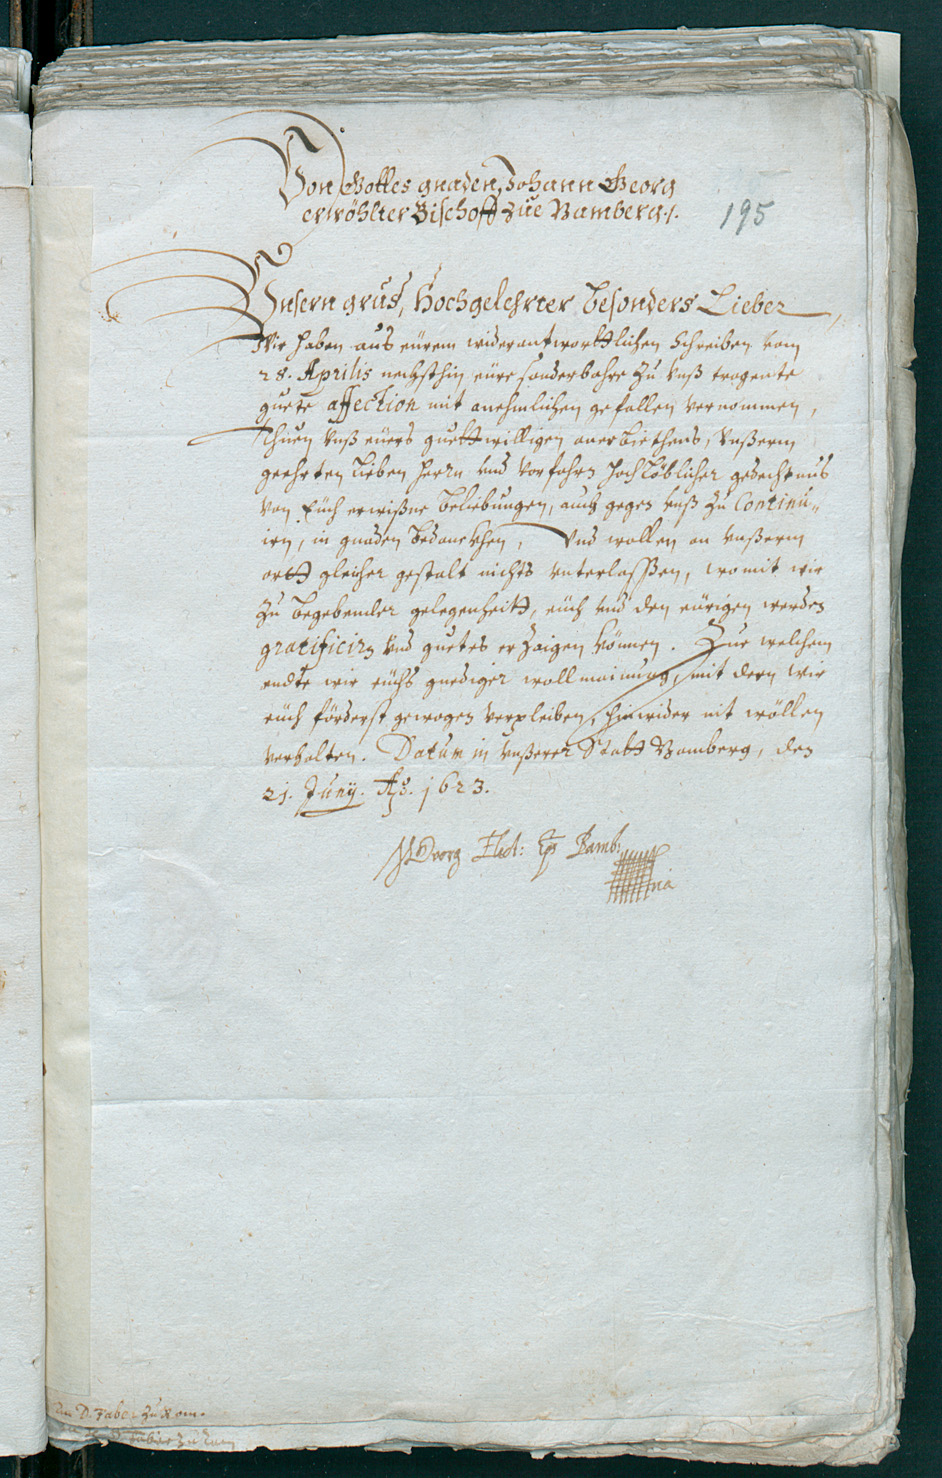 Von Gottes gnaden, Johann Georg
erwöhlter Bischoff zue Bamberg./.
195
Unsern grus, Hochgelehrter, besonders Lieber,
Wir haben aus eürem widerantworttlichen Schreiben vom
28. Aprilis nechsthin eüre sonderbahre zu unß tragente
guete affection mit anehmlichen gefallen vernommen,
Thuen unß eüers guettwilligen anerbiethens, unßerm
geehrten lieben Herrn und Vorfahrn hochlöblicher gedechtnus
von Eüch erwißne beliebungen, auch gegen unß zu Continu„
irn, in gnaden bedanckhen, Und wollen an unßerm
ortt gleicher gestalt nichts unterlaßen, womit wir
zu begebender gelegenheitt, eüch und den eürigen werden
gratificirn und guetes erzaigen können. Zue welchem
endte wir eüchs gnediger wollmainung, mit dern wir
eüch förderst gewogen verpleiben, hinwider nit wöllen
verhalten. Datum in unßerer Statt Bamberg, den
21. Junij. Ao. 1623.
JGeorg Elect: Ep Bamb:
An D. Faber zu Rom.